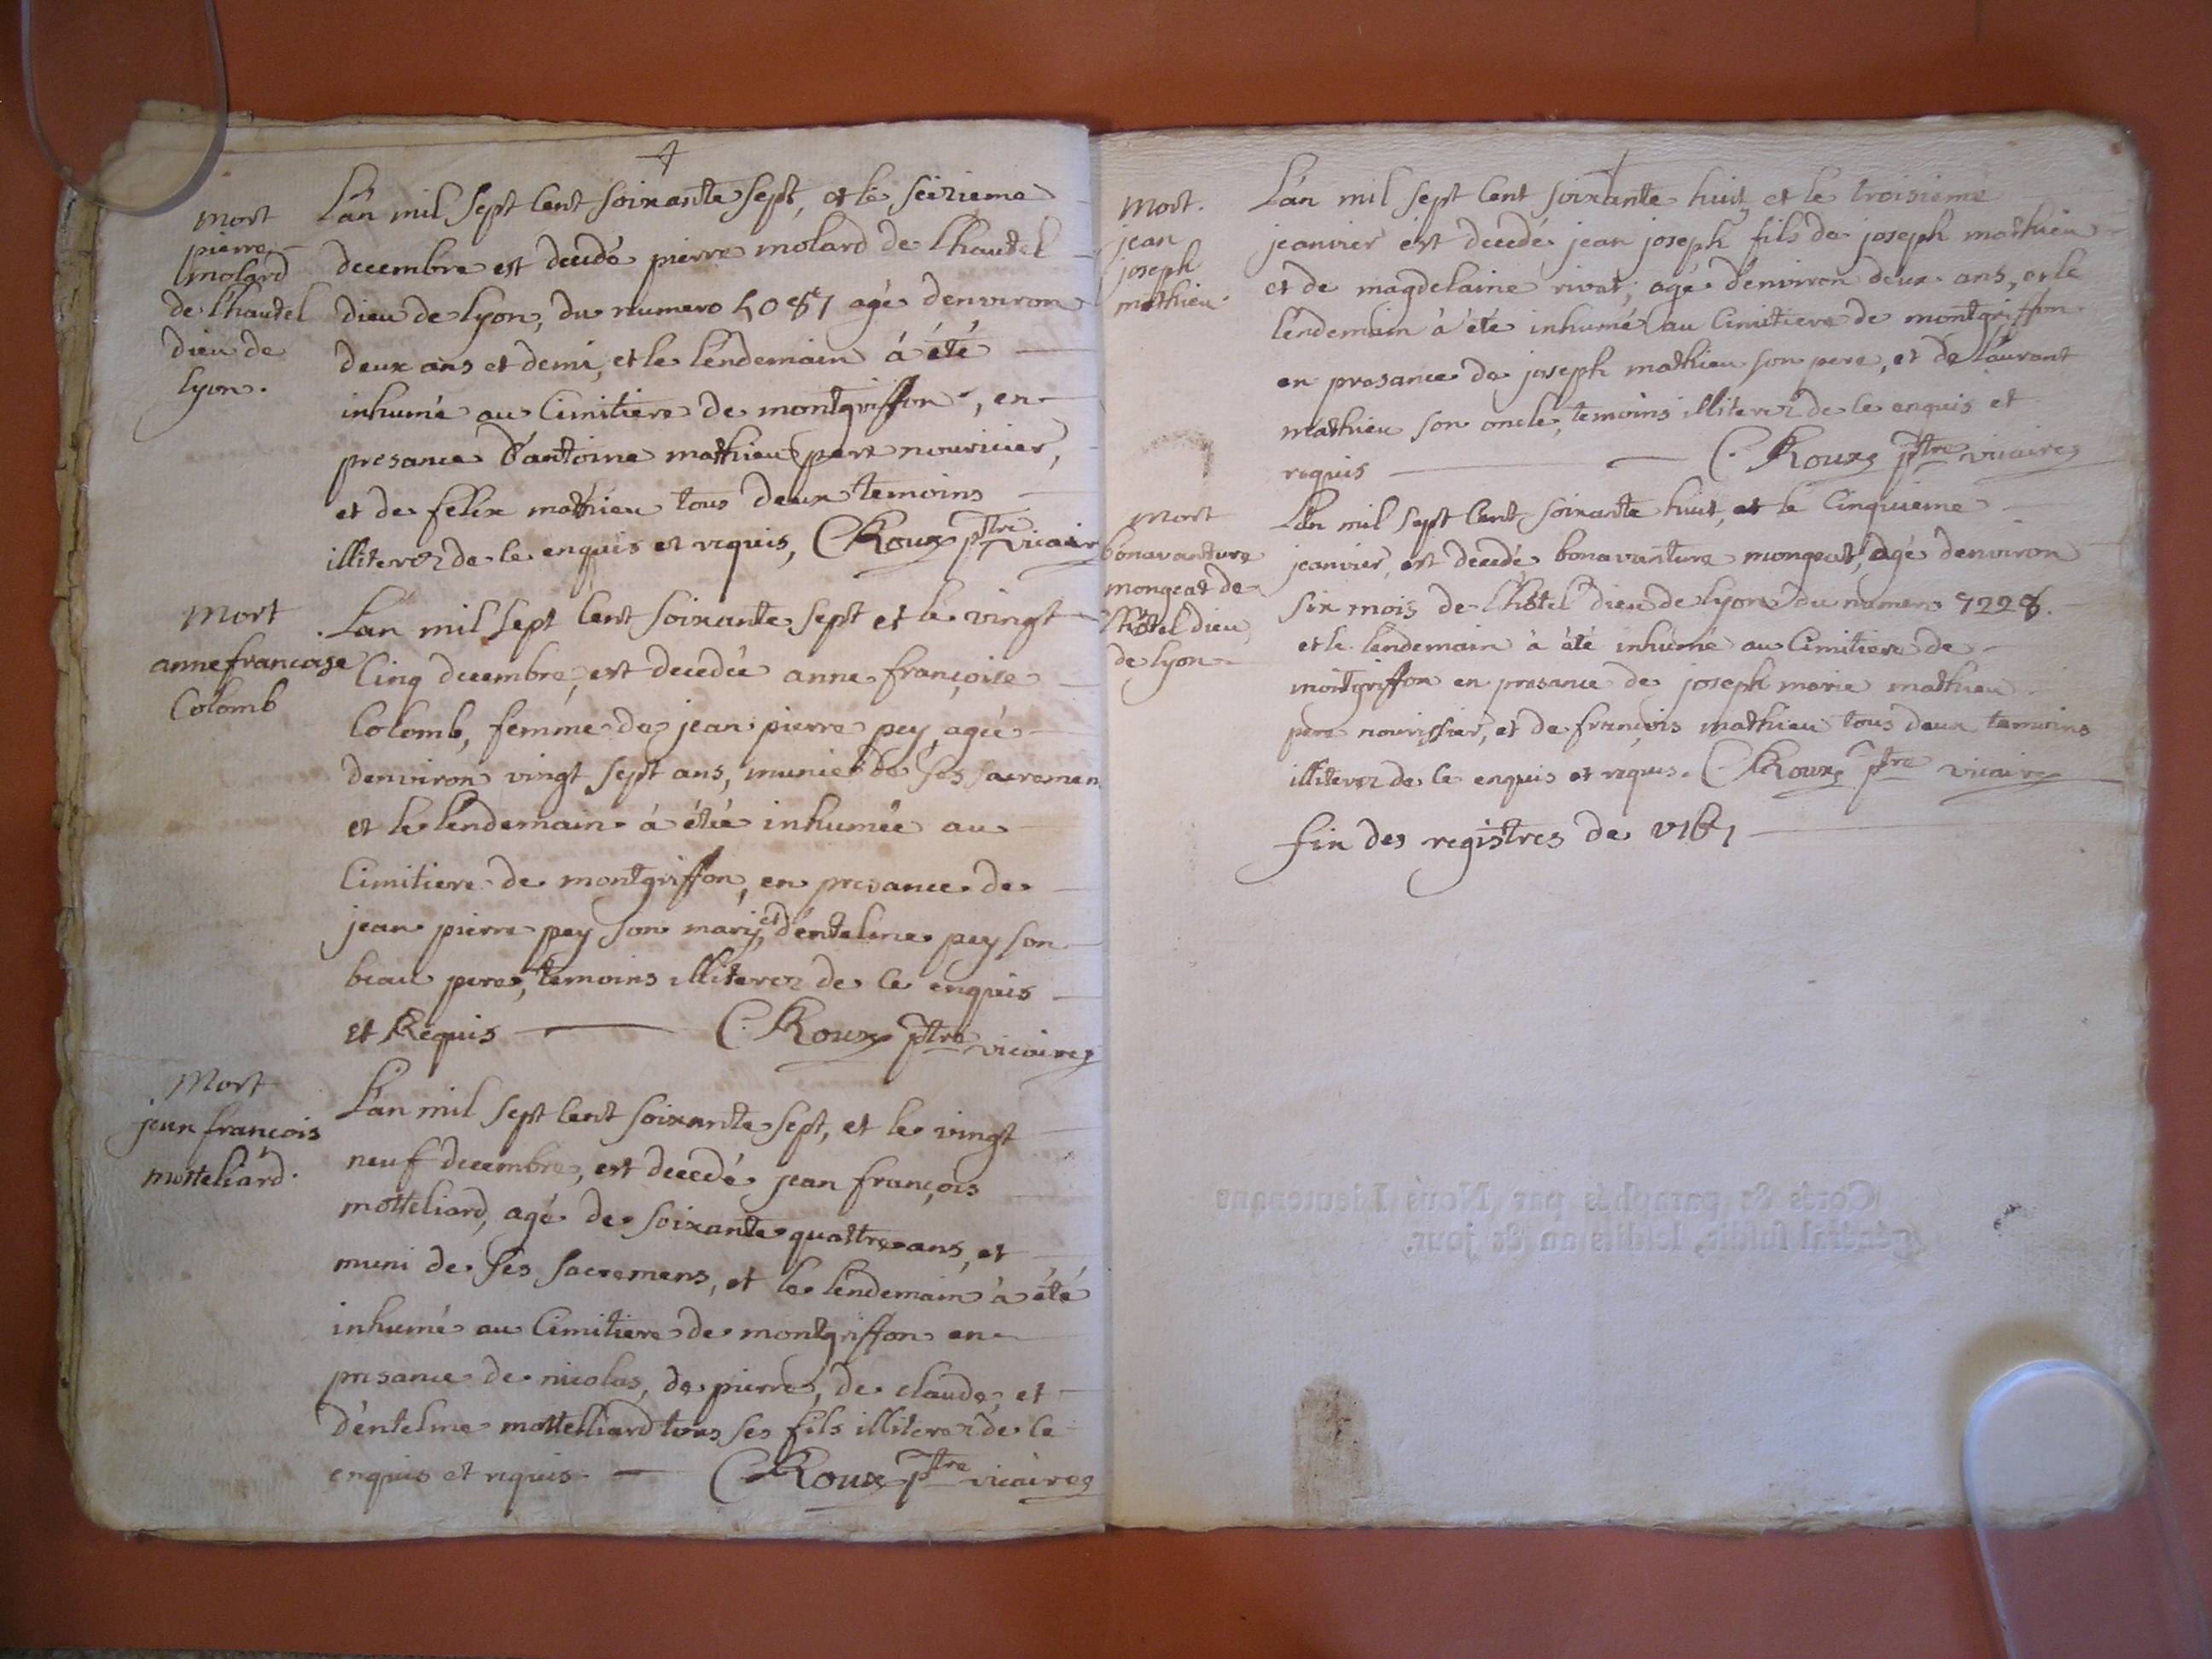 mort
pierre
molard
de l'hautel
dieu de
lyon.
L'an mil sept cent soixante sept, et le seizieme
decembre est decedé pierre molard de lhautel
dieu de lyon, du numero agé denviron
deux ans et demi, et le lendemain à été
inhumé au cimitiere de montgriffon, en
presance d'antoine mathieu pere nouricier,
et de felix mathieu tous deux temoins
illiterez de ce enquis et requis, C. Roux ptre vicaire
mort
anne francoise
Colomb
L'an mil sept cent soixante sept et le vingt
cinq decembre, est decedée anne françoise
Colomb, femme de jean pierre pey, agée
denviron vingt sept ans, munie de ses sacremen
et le lendemain à étée inhumée au
cimitiere de montgriffon, en presance de
jean pierre pey son mary, et d'entelme pey son
beau pere, temoins illiterez de ce enquis
et Requis C. Roux ptre vicaire
Mort
jean francois
motteliard.
L'an mil sept cent soixante sept, et le vingt
neuf decembre, est decedé jean françois
motteliard, agé de soixante quattre ans, et
muni de ses sacremens, et le lendemain à été
inhumé au cimitiere de montgriffon en
presance de nicolas, de pierre, de claude, et
d'entelme mottelliard tous ses fils illiterez de ce
enquis et requis. C. Roux ptre vicaire
Mort.
jean
joseph
mathieu.
L'an mil sept cent soixante huit, et le troisieme
jeanvier est decedé jean joseph fils de joseph mathieu
et de magdelaine rivat, agé d'environ deux ans, et le
lendemain à été inhumé au cimitiere de montgriffon
en presance de joseph mathieu son pere, et de laurant
mathieu son oncle, temoins illiterez de ce enquis et
requis C. Roux ptre vicaire
mort
bonavanture
mongeat de
l'hôtel dieu
de lyon
L'an mil sept cent soixante huit, et le cinquieme
jeanvier, est decedé bonavanture mongeat, agé denviron
six mois de l'hôtel dieu de lyon du numero 7228.
et le lendemain à été inhumé au cimitiere de
montgriffon en presance de joseph marie mathieu
pere nourissier, et de françois mathieu tous deux temoins
illiterez de ce enquis et requis. C. Roux ptre vicaire
fin des registres de
Cotés & paraphés par Nous Lieutenant
général susdit, lesdits an & jour.